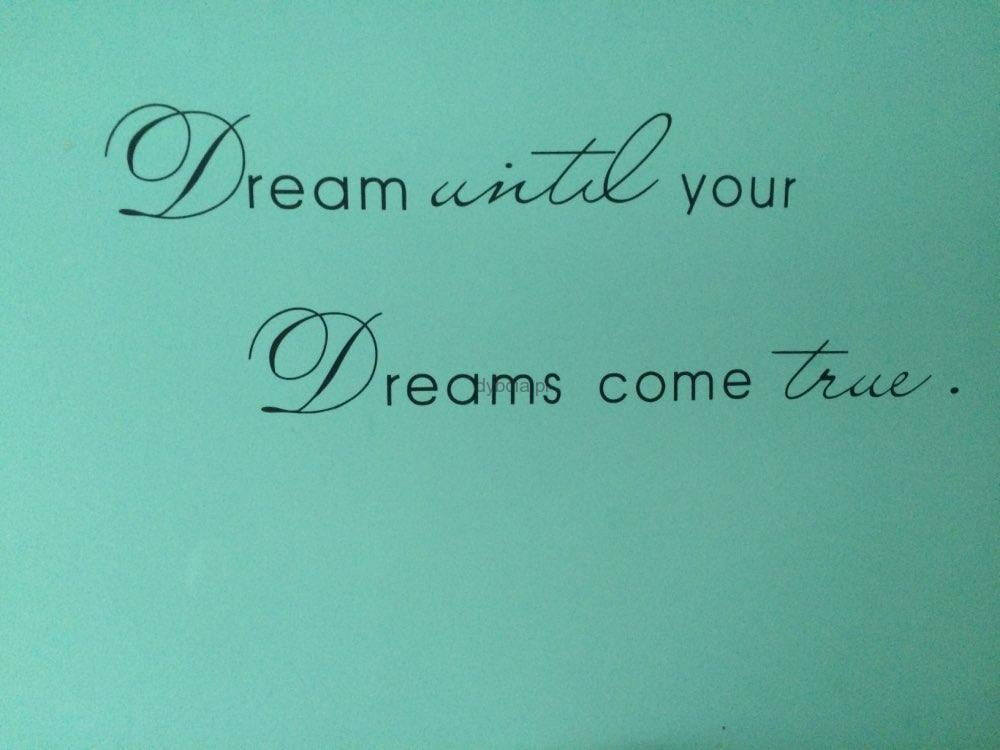 Dream until your
Dreams come true.